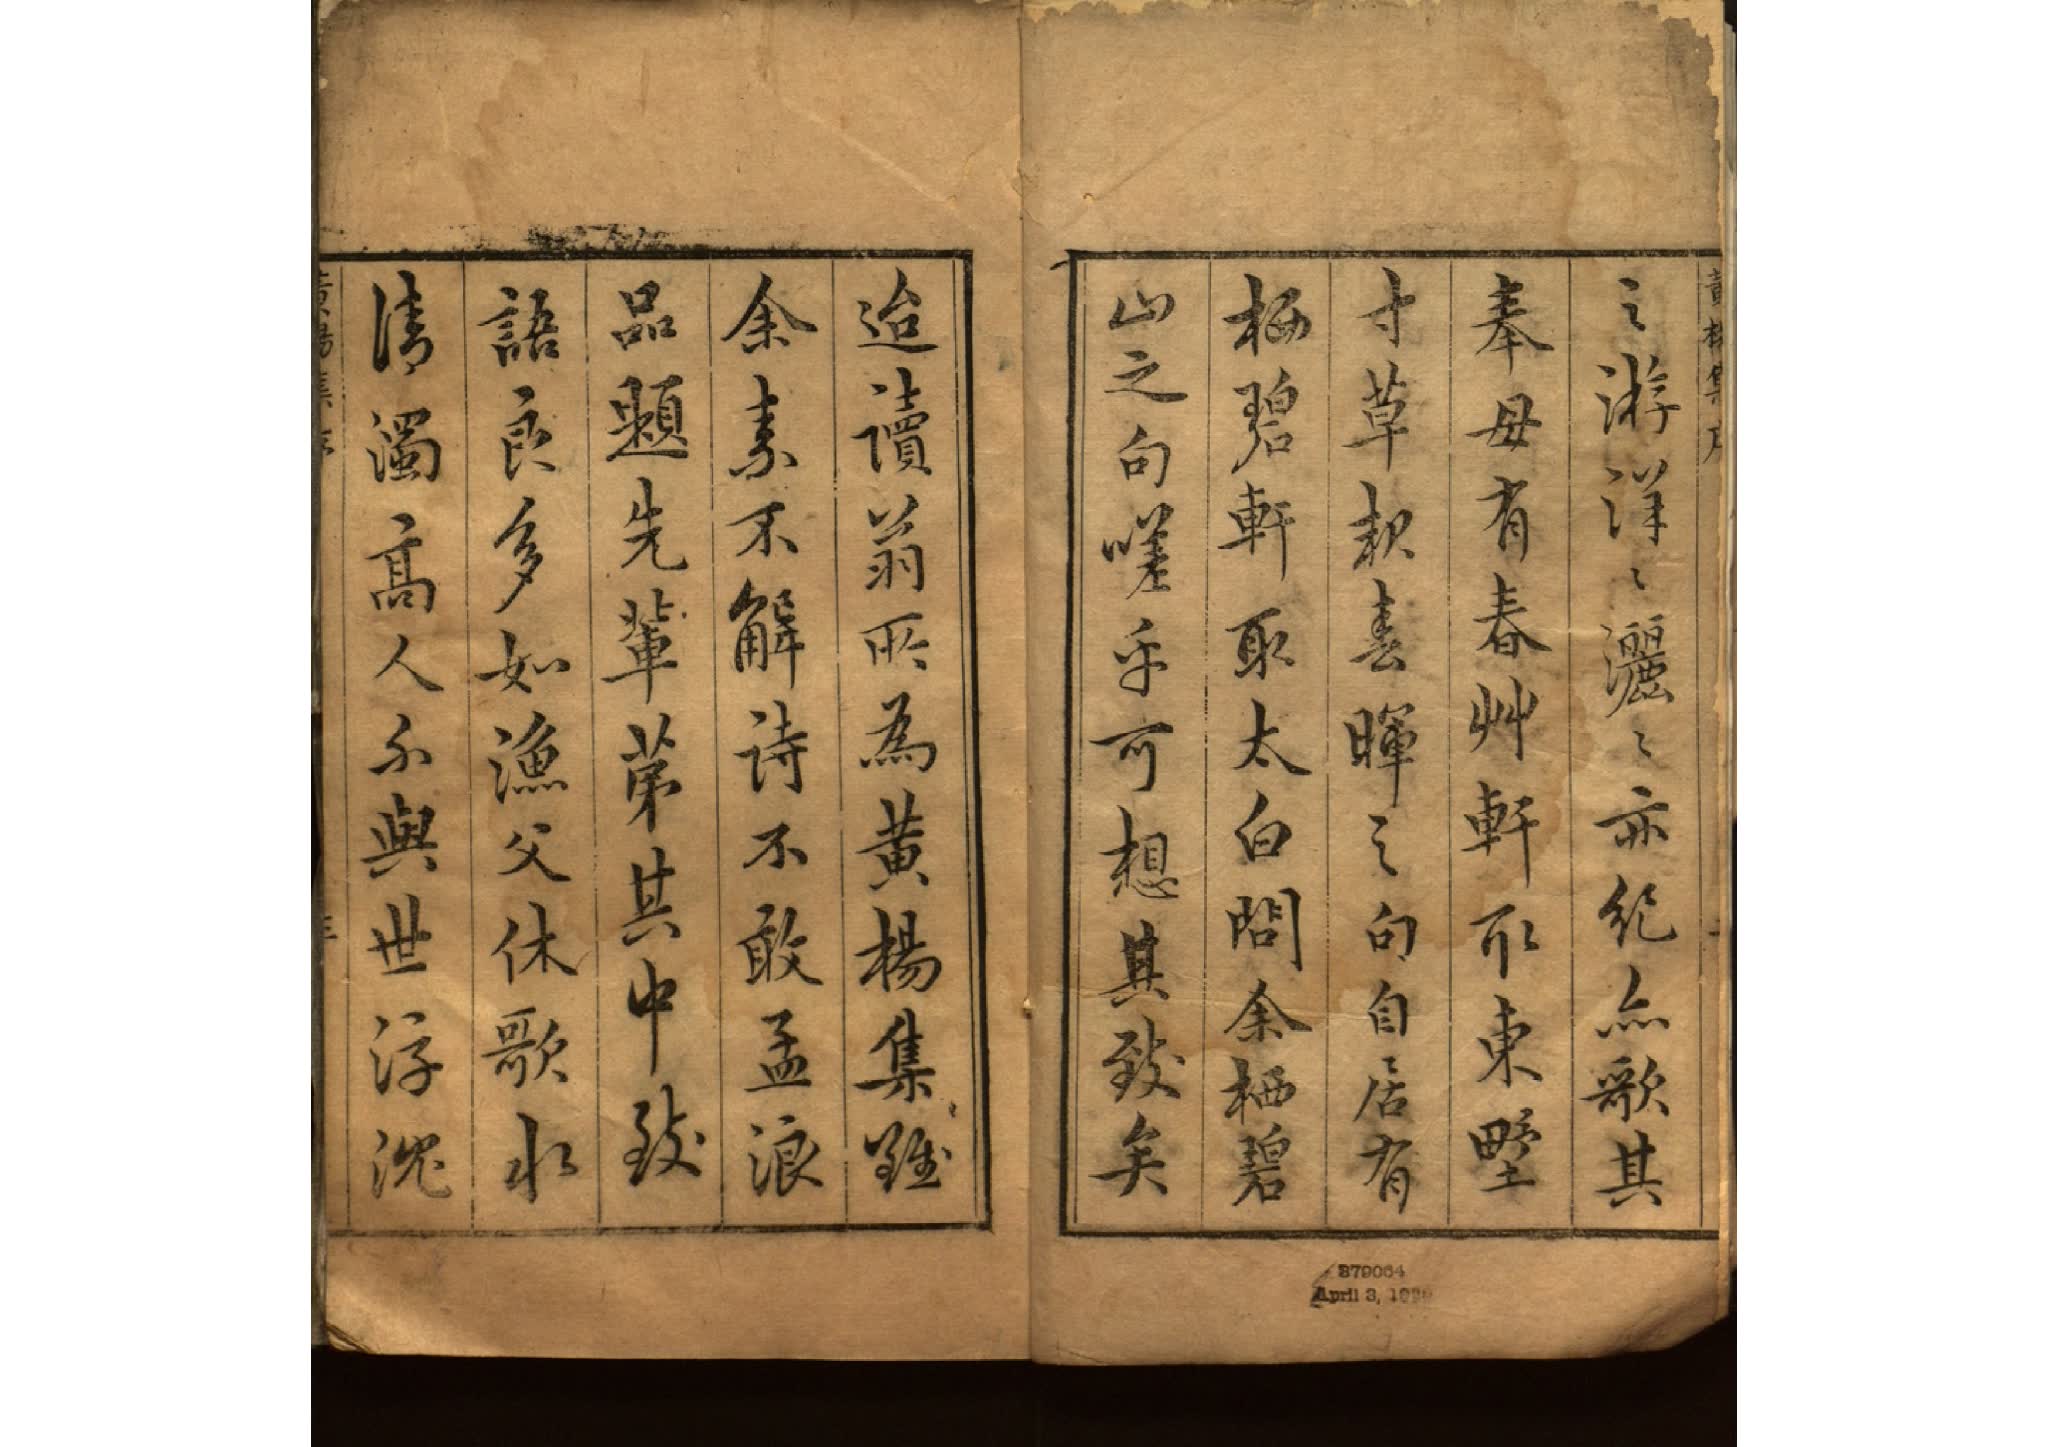 黃楊集序
之游洋〻灑〻亦絕無歌其
奉母有春艸軒取東埜
寸草報春暉之句自居有
栖碧軒取太白問余栖碧
山之句嗟乎可想其致矣
迨讀翁所為黃楊集雖
余素不解詩不敢孟浪
品題先輩苐其中致
語良多如漁父休歌水
清濁高人不與世浮沈
黃楊集序
379064
April 3, 19